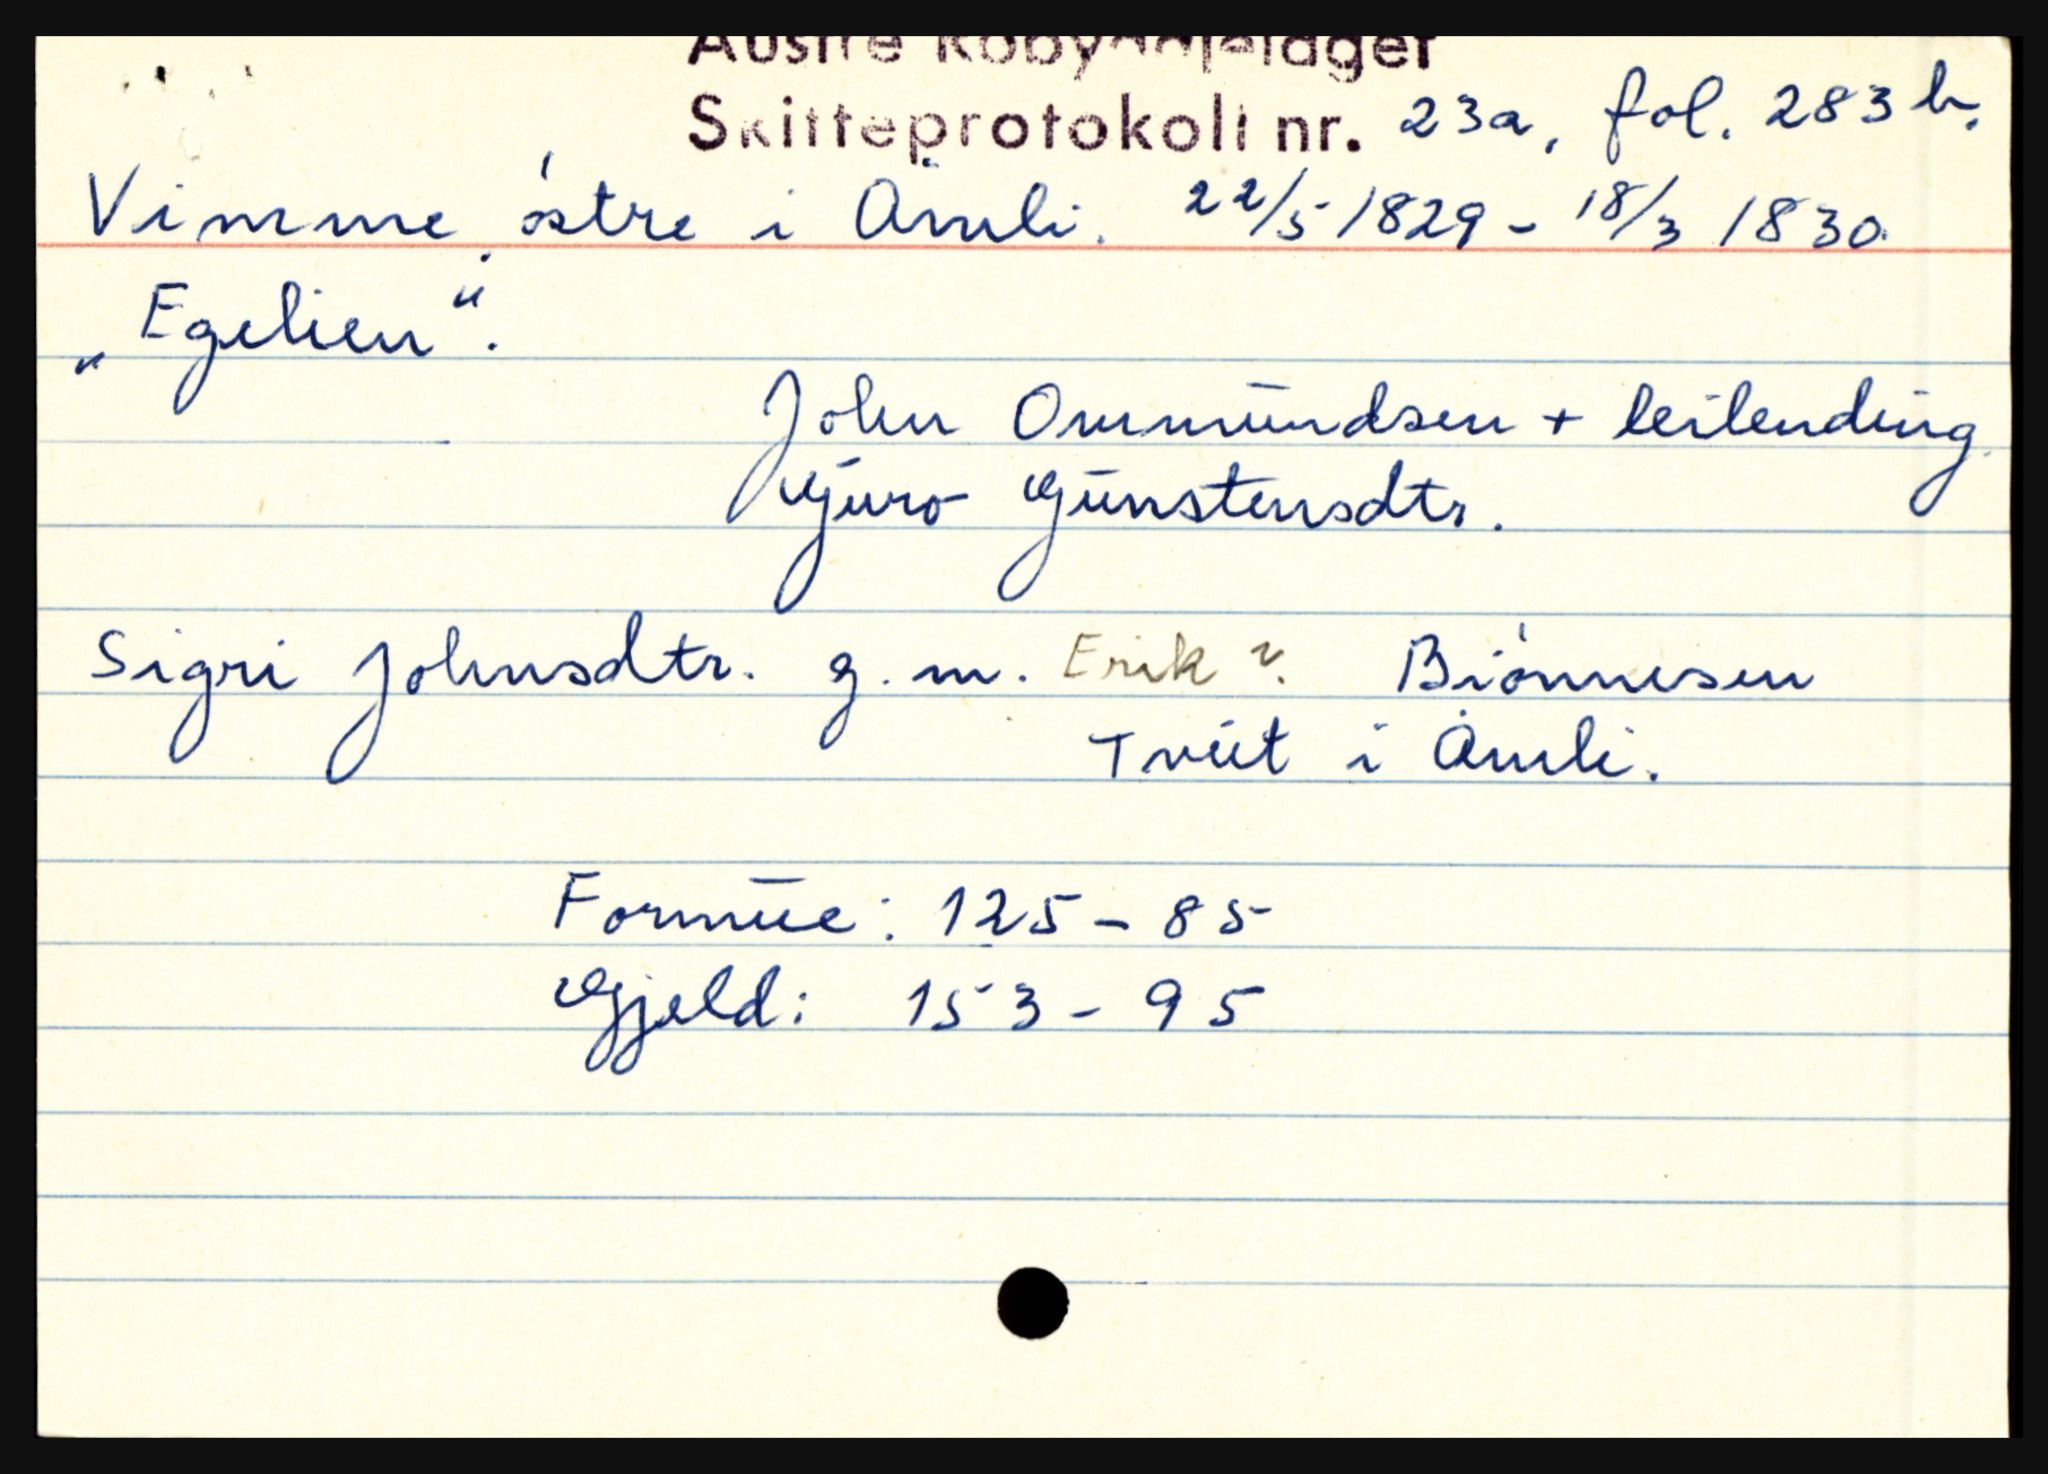 Austre Råbyggjelaget
Skifteprotokoll nr. 23a, fol. 283 b.
Vimme, östre i Åmli. 22/5 1829 - 18/3 1830.
„Egelien“.
John Ommundsen + leilending.
Gjuro Gunstensdtr.
Sigri Johnsdtr. g. m. Erik ?. Biönnesen
Tveit i Åmli.
Formue: 125 - 85
Gjeld: 153 - 95